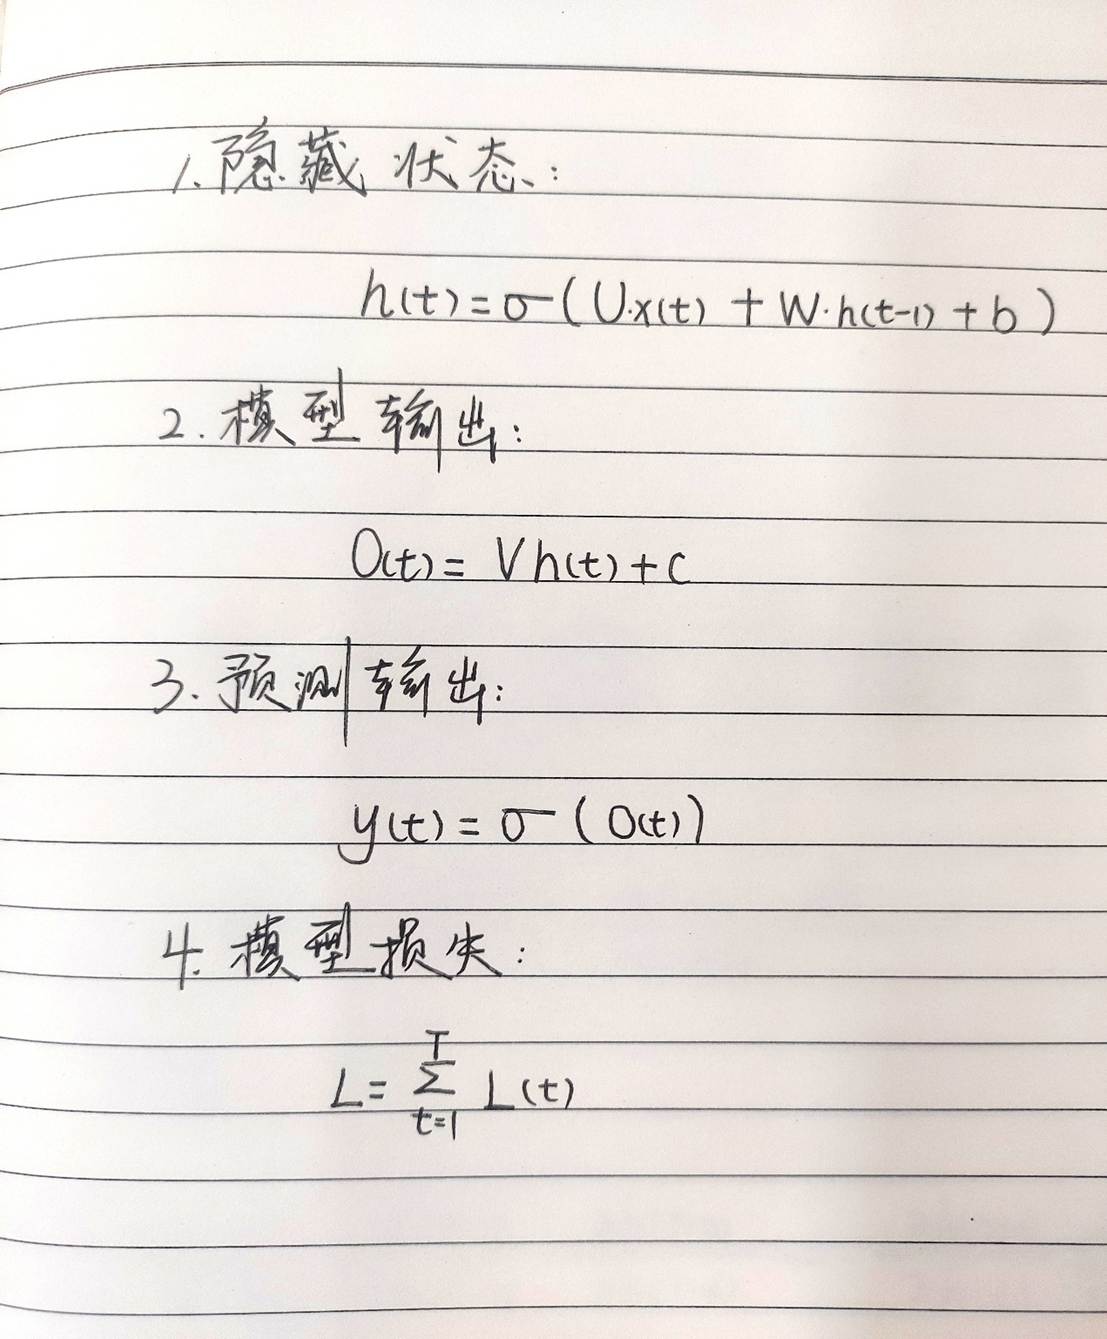 1.隐藏状态:
h(t)=σ(U·x(t) + W·h(t-1) + b)
2.模型输出:
O(t)= Vh(t)+c
3.预测输出:
y(t)=σ(O(t))
4.模型损失:
L= \sum_{t=1}^{T} L(t)